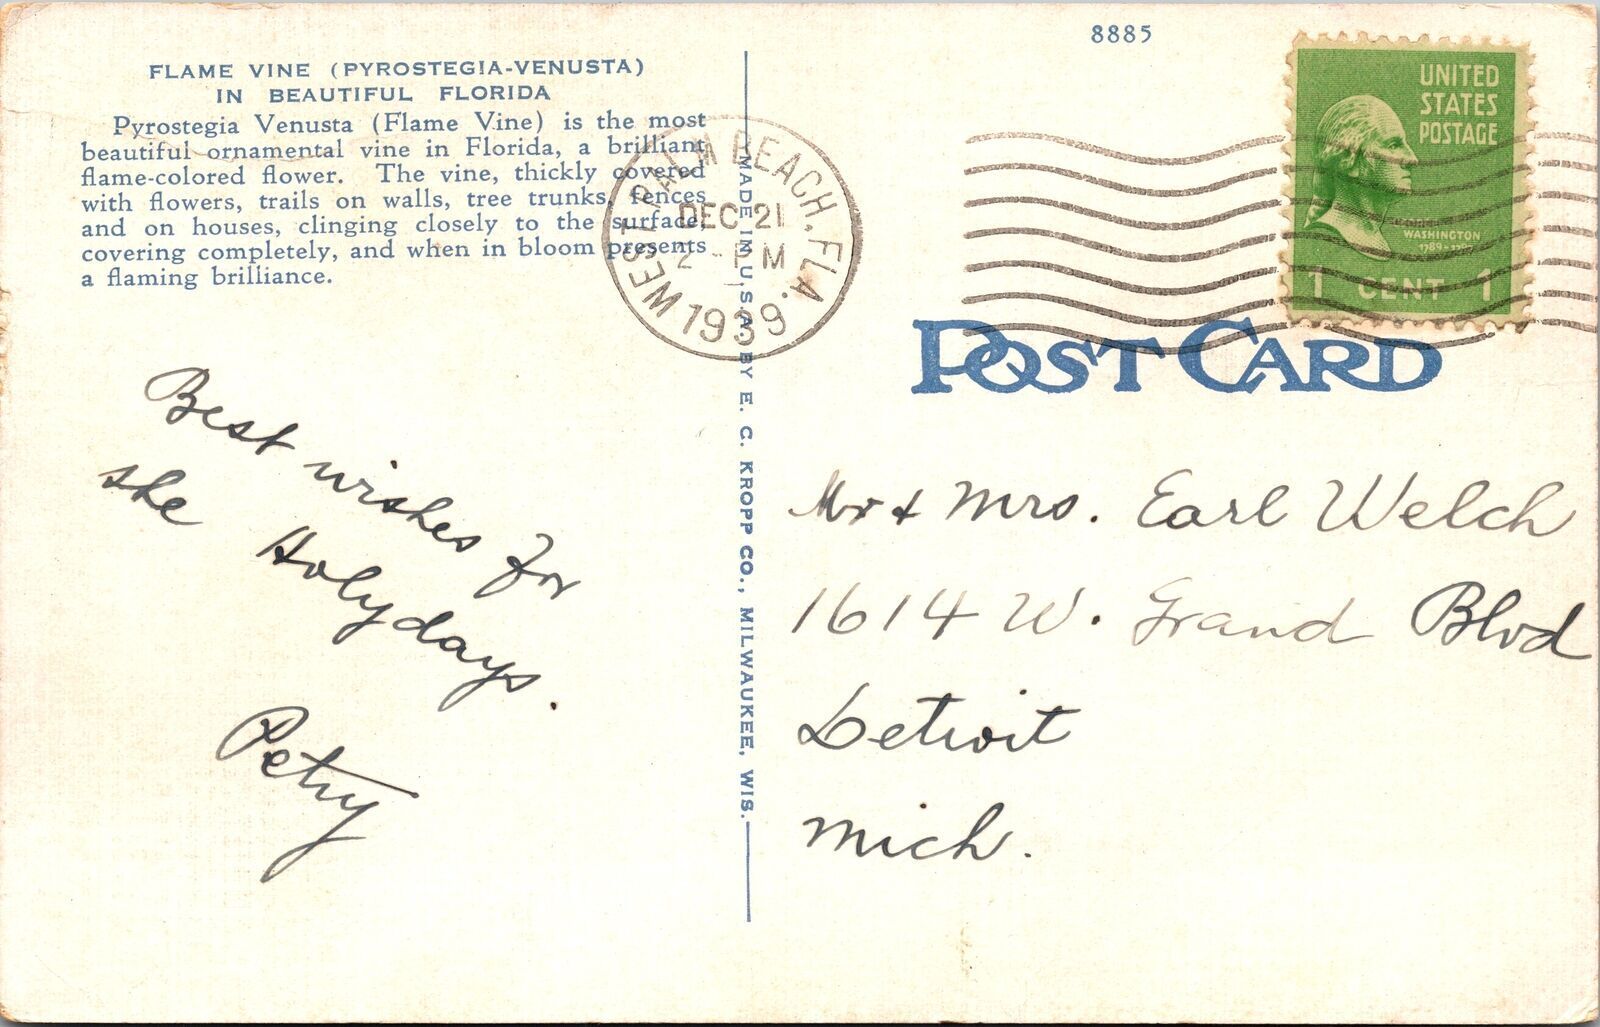 8885
FLAME VINE (PYROSTEGIA-VENUSTA)
IN BEAUTIFUL FLORIDA
Pyrostegia Venusta (Flame Vine) is the most
beautiful ornamental vine in Florida, a brilliant
flame-colored flower. The vine, thickly covered
with flowers, trails on walls, tree trunks, fences
and on houses, clinging closely to the surface,
covering completely, and when in bloom presents
a flaming brilliance.
WEST PALM BEACH, FLA.
DEC 21
2 - PM
1939
UNITED
STATES
POSTAGE
GEORGE
WASHINGTON
1789-1797
1 CENT 1
POST CARD
MADE IN U.S.A. BY E. C. KROPP CO., MILWAUKEE, WIS.
Best wishes for
the Holydays.
Petry
Mr + Mrs. Earl Welch
1614 W. Grand Blvd
Detroit
Mich.